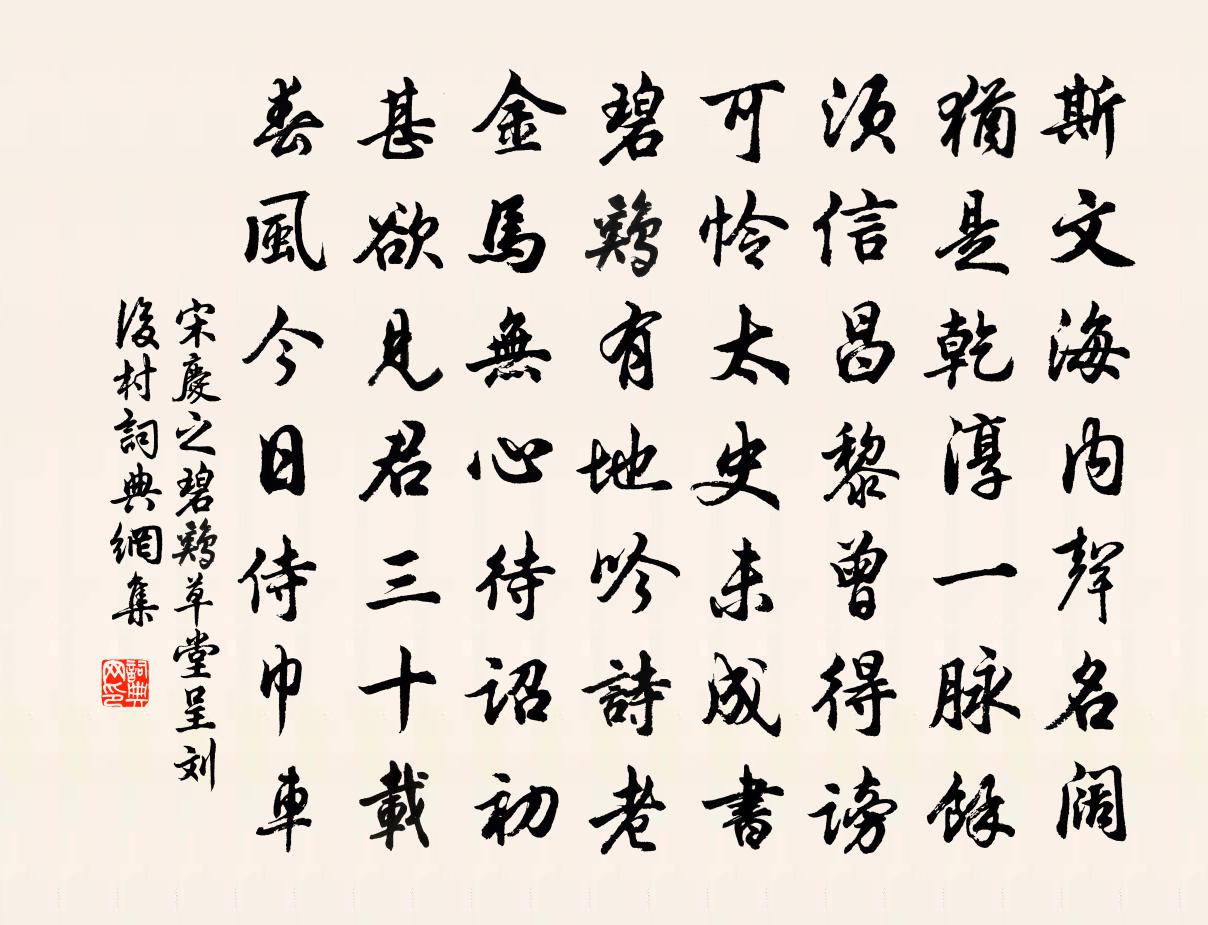 斯文海内聲名闊
猶是乾淳一脉餘
須信昌黎曾得謗
可怜太史未成書
碧鷄有地吟詩老
金馬無心待詔初
甚欲見君三十載
春風今日侍巾車
宋慶之碧鷄草堂呈刘
後村詞典網集
詞典网印